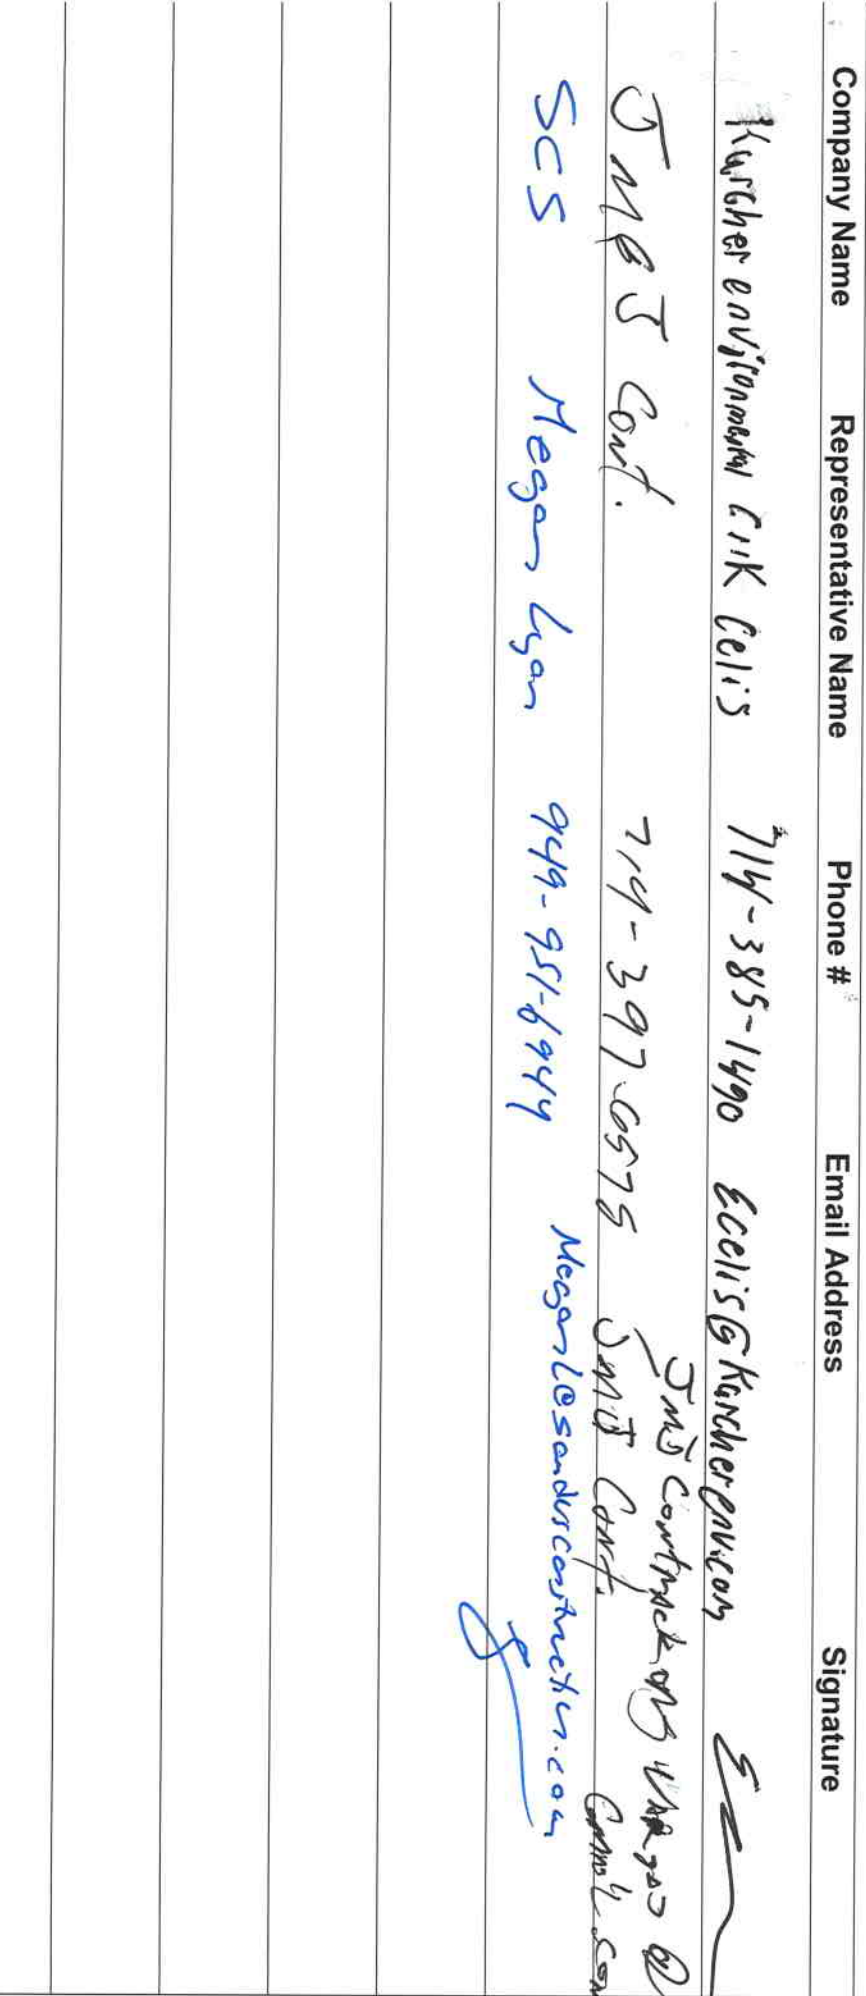 Company Name Representative Name Phone # Email Address Signature
Karcher environmental Erik Celis 714-385-1490 Ecelis@Karcherenv.com
JMS Contractors @
JMBJ Cont. 714-397-6575 JMJ Cont. Gmail.com
SCS Megan Lyan 949-951-6944 MeganL@sanderconstruction.com